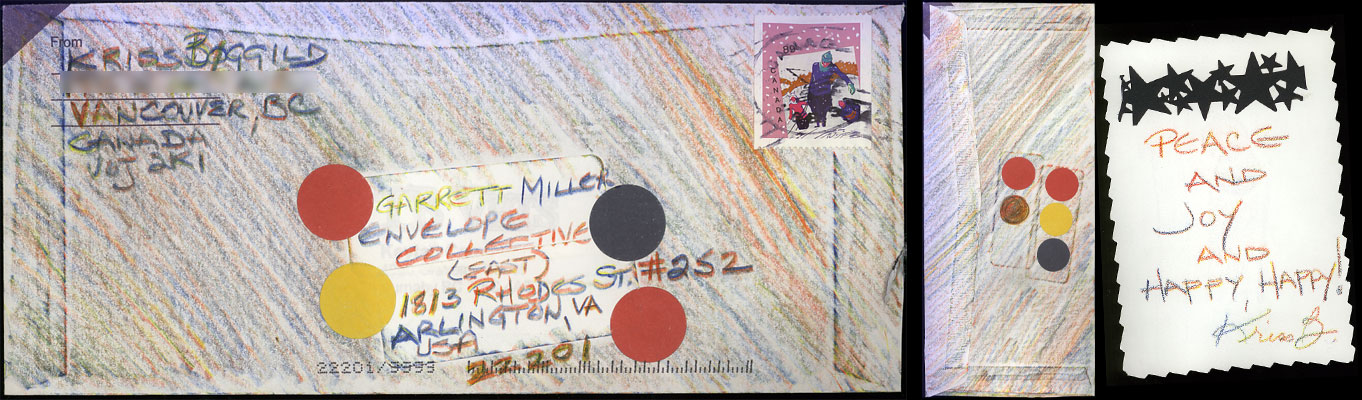 From
KRISS BOGGILD
VANCOUVER, BC
CANADA
V6J 2K1
CANADA
GARRETT MILLER
ENVELOPE
COLLECTIVE
(EAST)
1813 RHODES ST. #252
ARLINGTON, VA
USA
22201
22201/9999
PEACE
AND
JOY
AND
HAPPY, HAPPY!
Kriss B.